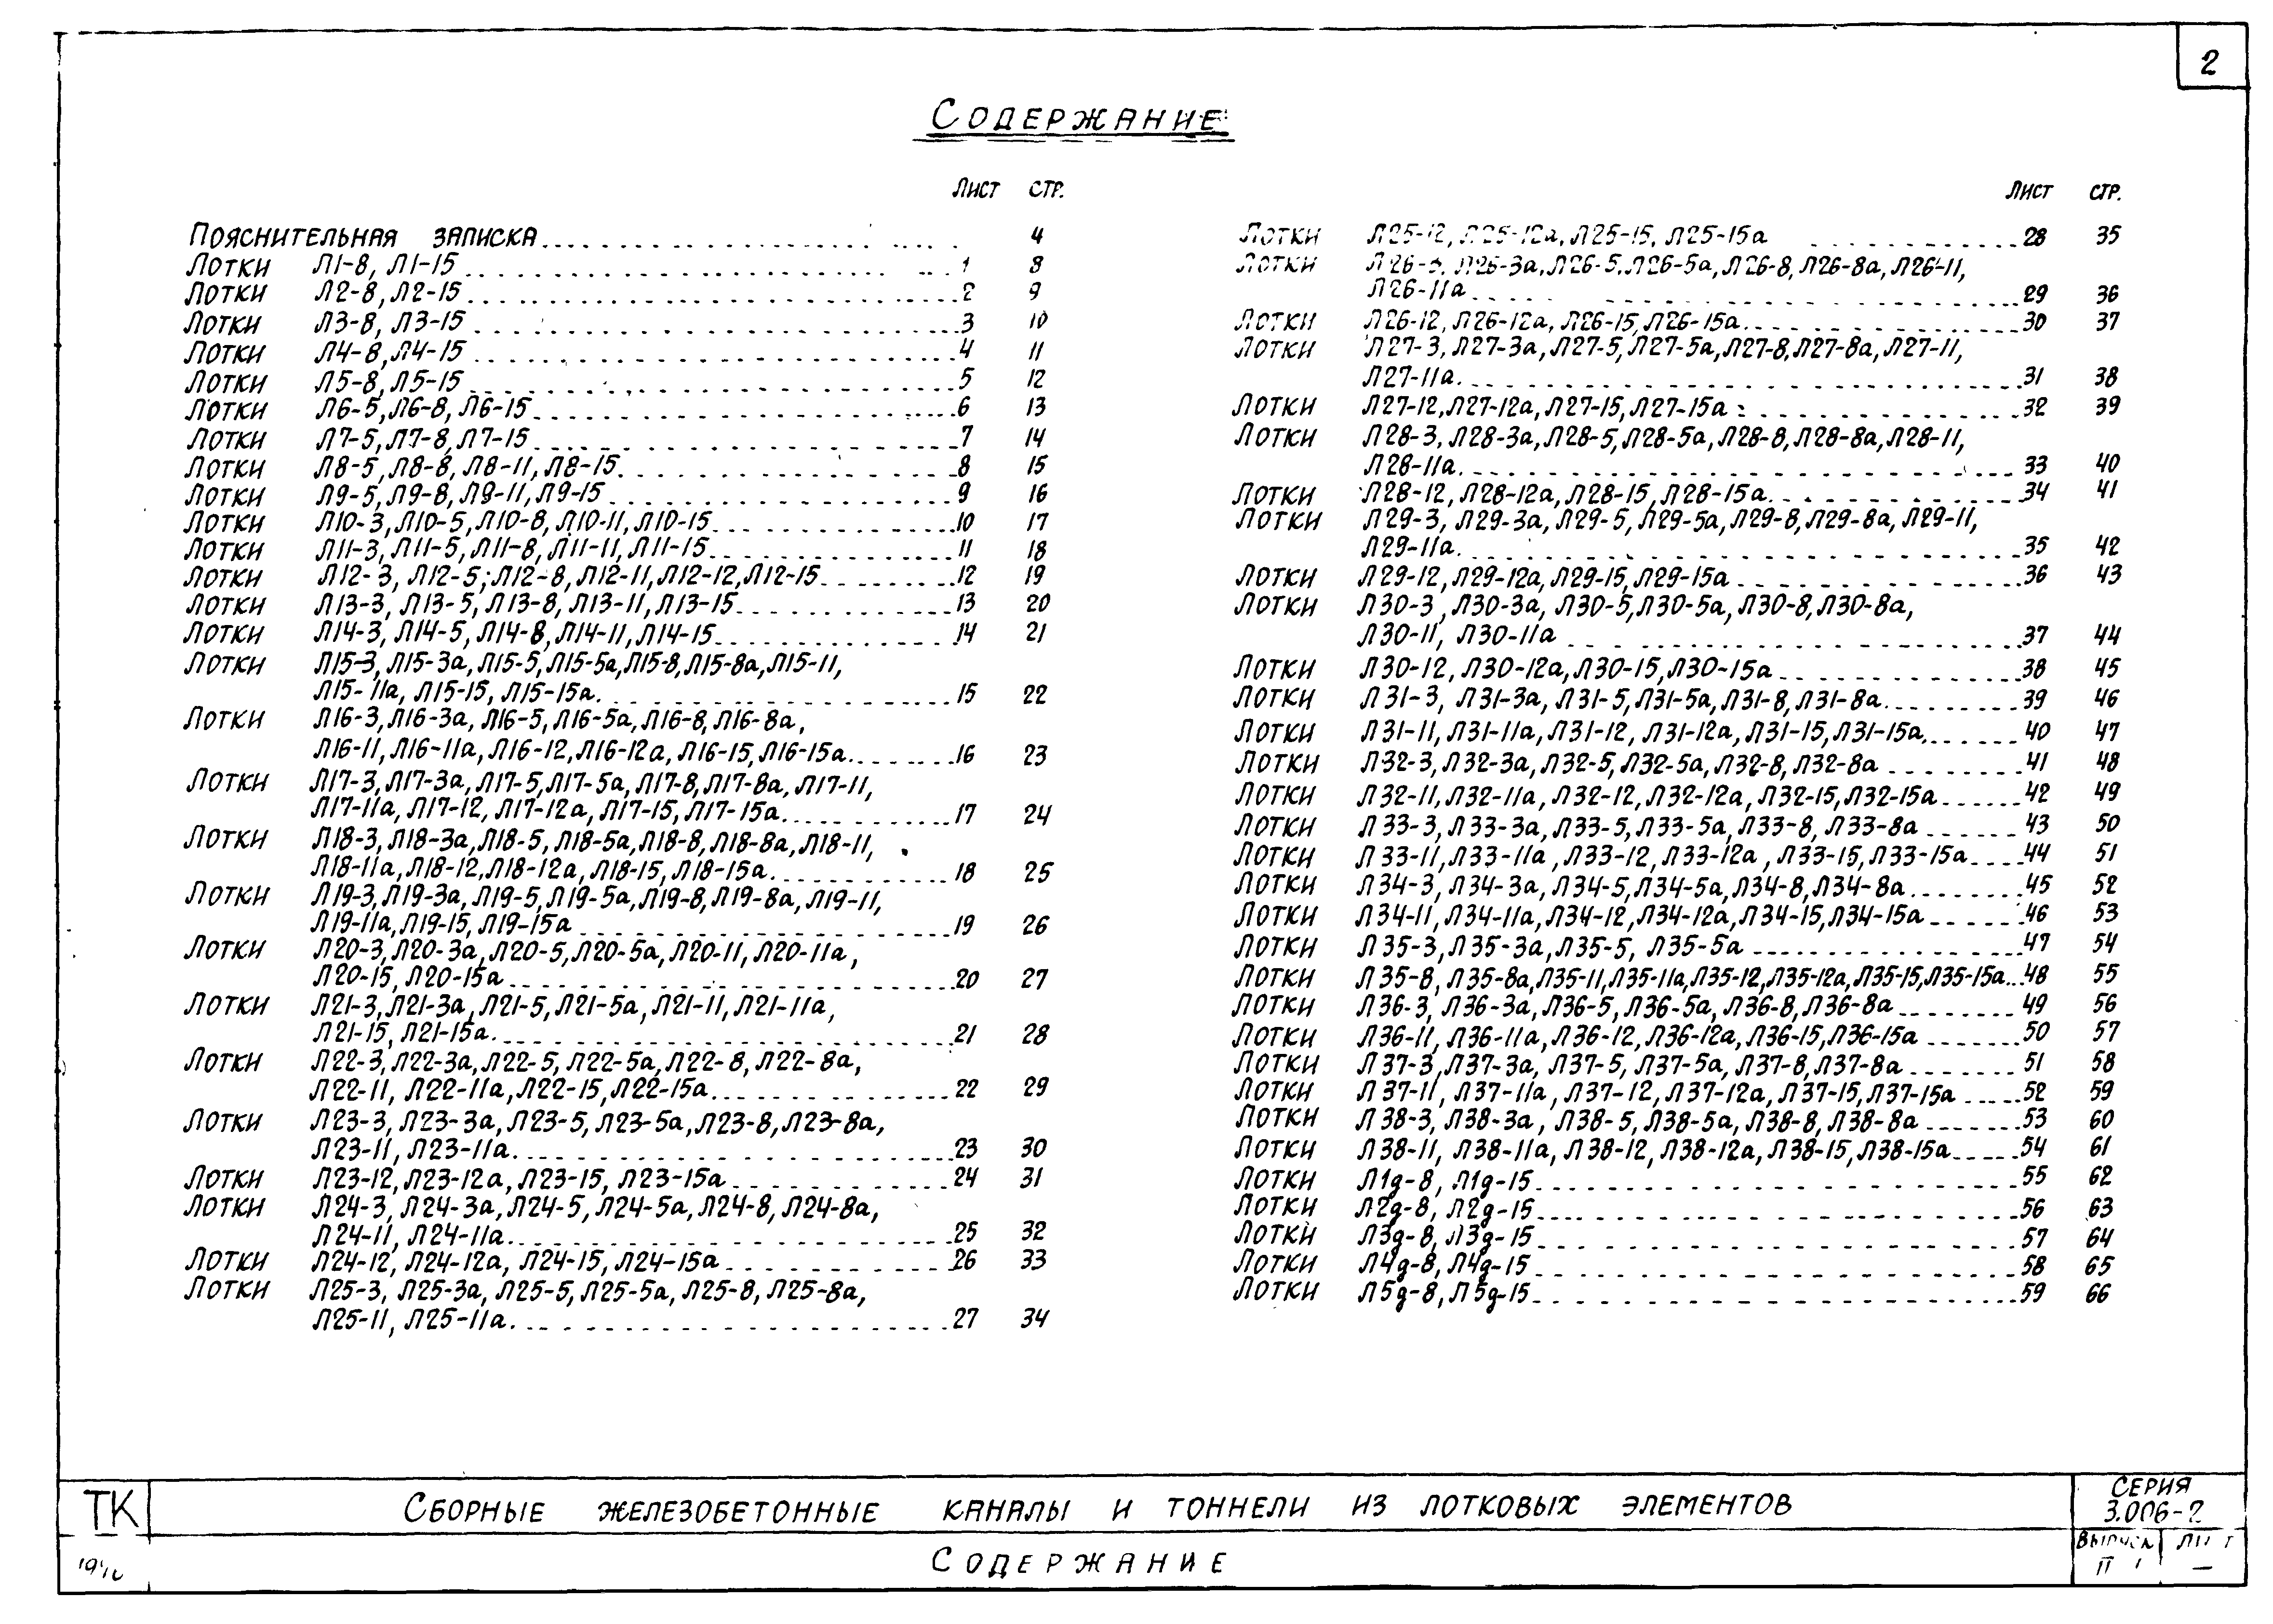 2
Содержание
Лист стр.
Пояснительная записка 4
Лотки Л1-8, Л1-15 1 8
Лотки Л2-8, Л2-15 2 9
Лотки Л3-8, Л3-15 3 10
Лотки Л4-8, Л4-15 4 11
Лотки Л5-8, Л5-15 5 12
Лотки Л6-5, Л6-8, Л6-15 6 13
Лотки Л7-5, Л7-8, Л7-15 7 14
Лотки Л8-5, Л8-8, Л8-11, Л8-15 8 15
Лотки Л9-5, Л9-8, Л9-11, Л9-15 9 16
Лотки Л10-3, Л10-5, Л10-8, Л10-11, Л10-15 10 17
Лотки Л11-3, Л11-5, Л11-8, Л11-11, Л11-15 11 18
Лотки Л12-3, Л12-5; Л12-8, Л12-11, Л12-12, Л12-15 12 19
Лотки Л13-3, Л13-5, Л13-8, Л13-11, Л13-15 13 20
Лотки Л14-3, Л14-5, Л14-8, Л14-11, Л14-15 14 21
Лотки Л15-3, Л15-3а, Л15-5, Л15-5а, Л15-8, Л15-8а, Л15-11,
Л15-11а, Л15-15, Л15-15а 15 22
Лотки Л16-3, Л16-3а, Л16-5, Л16-5а, Л16-8, Л16-8а,
Л16-11, Л16-11а, Л16-12, Л16-12а, Л16-15, Л16-15а 16 23
Лотки Л17-3, Л17-3а, Л17-5, Л17-5а, Л17-8, Л17-8а, Л17-11,
Л17-11а, Л17-12, Л17-12а, Л17-15, Л17-15а 17 24
Лотки Л18-3, Л18-3а, Л18-5, Л18-5а, Л18-8, Л18-8а, Л18-11,
Л18-11а, Л18-12, Л18-12а, Л18-15, Л18-15а 18 25
Лотки Л19-3, Л19-3а, Л19-5, Л19-5а, Л19-8, Л19-8а, Л19-11,
Л19-11а, Л19-15, Л19-15а 19 26
Лотки Л20-3, Л20-3а, Л20-5, Л20-5а, Л20-11, Л20-11а,
Л20-15, Л20-15а 20 27
Лотки Л21-3, Л21-3а, Л21-5, Л21-5а, Л21-11, Л21-11а,
Л21-15, Л21-15а 21 28
Лотки Л22-3, Л22-3а, Л22-5, Л22-5а, Л22-8, Л22-8а,
Л22-11, Л22-11а, Л22-15, Л22-15а 22 29
Лотки Л23-3, Л23-3а, Л23-5, Л23-5а, Л23-8, Л23-8а,
Л23-11, Л23-11а 23 30
Лотки Л23-12, Л23-12а, Л23-15, Л23-15а 24 31
Лотки Л24-3, Л24-3а, Л24-5, Л24-5а, Л24-8, Л24-8а,
Л24-11, Л24-11а 25 32
Лотки Л24-12, Л24-12а, Л24-15, Л24-15а 26 33
Лотки Л25-3, Л25-3а, Л25-5, Л25-5а, Л25-8, Л25-8а,
Л25-11, Л25-11а 27 34
Лист стр.
Лотки Л25-12, Л25-12а, Л25-15, Л25-15а 28 35
Лотки Л26-3, Л26-3а, Л26-5, Л26-5а, Л26-8, Л26-8а, Л26-11,
Л26-11а 29 36
Лотки Л26-12, Л26-12а, Л26-15, Л26-15а 30 37
Лотки Л27-3, Л27-3а, Л27-5, Л27-5а, Л27-8, Л27-8а, Л27-11,
Л27-11а 31 38
Лотки Л27-12, Л27-12а, Л27-15, Л27-15а 32 39
Лотки Л28-3, Л28-3а, Л28-5, Л28-5а, Л28-8, Л28-8а, Л28-11,
Л28-11а 33 40
Лотки Л28-12, Л28-12а, Л28-15, Л28-15а 34 41
Лотки Л29-3, Л29-3а, Л29-5, Л29-5а, Л29-8, Л29-8а, Л29-11,
Л29-11а 35 42
Лотки Л29-12, Л29-12а, Л29-15, Л29-15а 36 43
Лотки Л30-3, Л30-3а, Л30-5, Л30-5а, Л30-8, Л30-8а,
Л30-11, Л30-11а 37 44
Лотки Л30-12, Л30-12а, Л30-15, Л30-15а 38 45
Лотки Л31-3, Л31-3а, Л31-5, Л31-5а, Л31-8, Л31-8а 39 46
Лотки Л31-11, Л31-11а, Л31-12, Л31-12а, Л31-15, Л31-15а 40 47
Лотки Л32-3, Л32-3а, Л32-5, Л32-5а, Л32-8, Л32-8а 41 48
Лотки Л32-11, Л32-11а, Л32-12, Л32-12а, Л32-15, Л32-15а 42 49
Лотки Л33-3, Л33-3а, Л33-5, Л33-5а, Л33-8, Л33-8а 43 50
Лотки Л33-11, Л33-11а, Л33-12, Л33-12а, Л33-15, Л33-15а 44 51
Лотки Л34-3, Л34-3а, Л34-5, Л34-5а, Л34-8, Л34-8а 45 52
Лотки Л34-11, Л34-11а, Л34-12, Л34-12а, Л34-15, Л34-15а 46 53
Лотки Л35-3, Л35-3а, Л35-5, Л35-5а 47 54
Лотки Л35-8, Л35-8а, Л35-11, Л35-11а, Л35-12, Л35-12а, Л35-15, Л35-15а 48 55
Лотки Л36-3, Л36-3а, Л36-5, Л36-5а, Л36-8, Л36-8а 49 56
Лотки Л36-11, Л36-11а, Л36-12, Л36-12а, Л36-15, Л36-15а 50 57
Лотки Л37-3, Л37-3а, Л37-5, Л37-5а, Л37-8, Л37-8а 51 58
Лотки Л37-11, Л37-11а, Л37-12, Л37-12а, Л37-15, Л37-15а 52 59
Лотки Л38-3, Л38-3а, Л38-5, Л38-5а, Л38-8, Л38-8а 53 60
Лотки Л38-11, Л38-11а, Л38-12, Л38-12а, Л38-15, Л38-15а 54 61
Лотки Л1д-8, Л1д-15 55 62
Лотки Л2д-8, Л2д-15 56 63
Лотки Л3д-8, Л3д-15 57 64
Лотки Л4д-8, Л4д-15 58 65
Лотки Л5д-8, Л5д-15 59 66
ТК
Сборные железобетонные каналы и тоннели из лотковых элементов
Серия
3.006-2
Содержание
Выпуск Лист
—